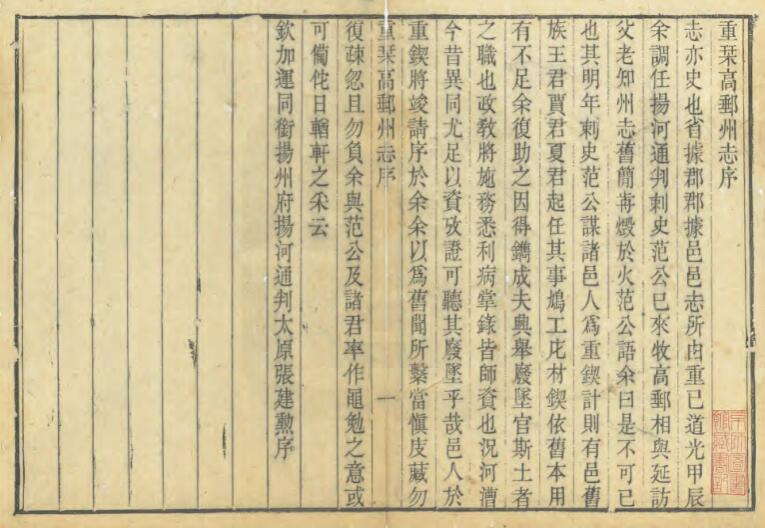 重栞高郵州志序
志亦史也省據郡郡據邑邑志所由重已道光甲辰
余調任揚河通判刺史范公已來牧高郵相與延訪
父老知州志舊蕳毎燬於火范公語余曰是不可已
也其明年刺史范公謀諸邑人爲重鍥計則有邑舊
族王君賈君夏君起任其事鳩工庀材鍥依舊本用
有不足余復助之因得鐫成夫典舉廢墜官斯土者
之職也政敎將施務悉利病掌錄皆師資也況河漕
今昔異同尤足以資攷證可聽其廢墜乎哉邑人於
重鍥將竣請序於余余以爲舊聞所繫當愼庋藏勿
重栞高郵州志序
一
復疎忽且勿負余與范公及諸君率作黽勉之意或
可僃佗日輶軒之采云
欽加運同銜揚州府揚河通判太原張建勲序